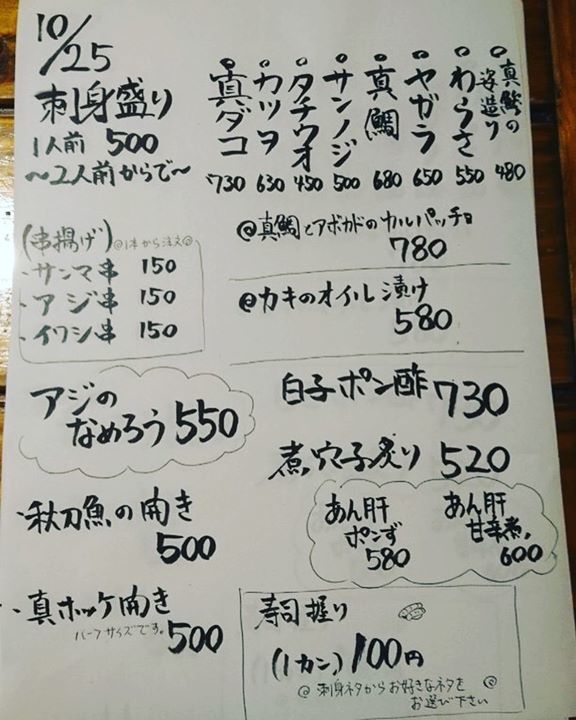 10/25
刺身盛り
1人前 500
〜2人前からで〜
真鯵の姿造り 480
わらさ 550
ヤガラ 650
真鯛 680
サンノジ 500
タチウオ 450
カツヲ 630
真ダコ 730
(串揚げ) @1本から注文@
・サンマ串 150
・アジ串 150
・イワシ串 150
@真鯛とアボカドのカルパッチョ
780
@カキのオイル漬け
580
アジの
なめろう 550
白子ポン酢 730
煮穴子炙り 520
あん肝
ポンず
580
あん肝
甘辛煮
600
・秋刀魚の開き
500
・真ホッケ開き
ハーフサイズです。500
寿司握り
(1カン) 100円
@刺身ネタからお好きなネタを@
お選び下さい